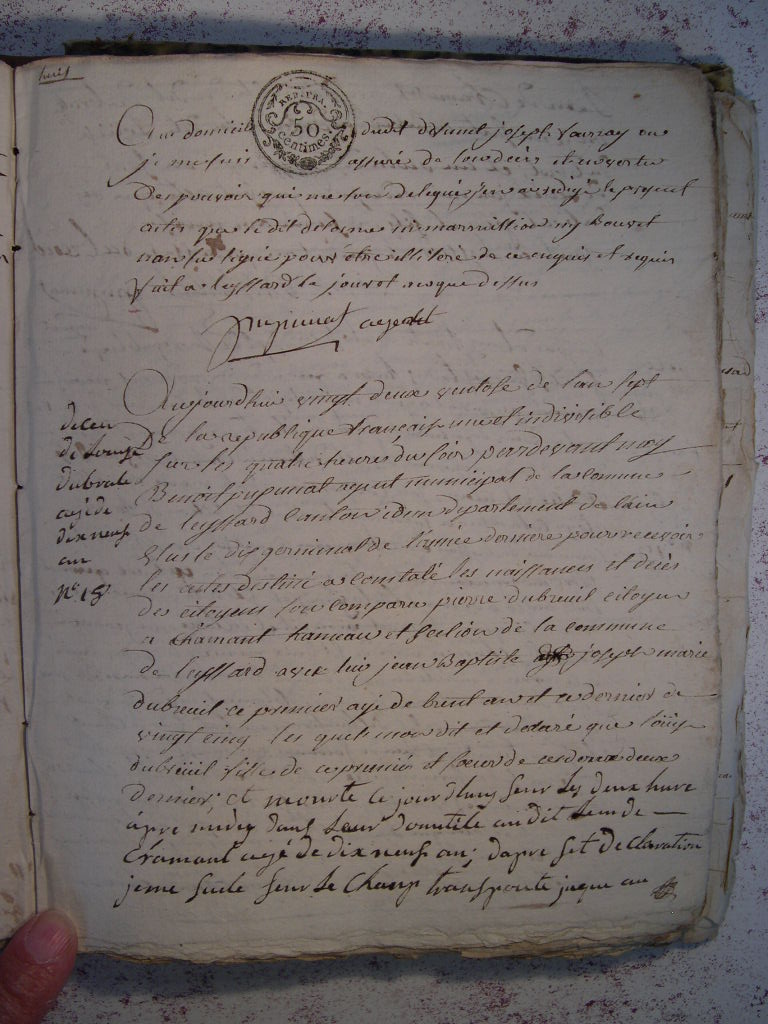 REP. FRA.
50
centimes
Au domicile dudit defunt joseph Varray ou
je me suis assuré de son deces et en vertu
Des pouvoir qui me son delegué j'en ai redigé le present
actes que le dit delorme ni marmillion ny Bouvet
non su signé pour être illiteré de ce enquis et requis
fait a leyssard le jour et an que dessus
pupunat agent
Aujourdhui vingt deux ventose de l'an sept
De la republique francaise une et indivisible
sur les quatre heures du soir pardevant moy
Benoit pupunat agent municipal de la commune
de leyssard canton idem departement de l'ain
Elus le dix germinal de l'année derniere pour recevoir
les actes destiné a constaté les naissances et décès
des citoyens son comparu pierre dubreuil citoyen
a Chamant hameau et section de la commune
de leyssard avec lui jean Baptiste joseph marie
dubreuil ce premier agé de et ce dernier de
vingt cinq les quels mon dit et declaré que loüise
dubreüil fille de ce premier et soeur de ces deux
dernier, et mourte ce jourdhuy seur les deux hure
apre midy dans leur domicile au dit lieu de
Cramant agé de dix neuf an; dapre set declaration
jeme suile seur le Champ transporté juque au
decen
de Louise
dubrale
agé de
dix neuf
an
n° 18